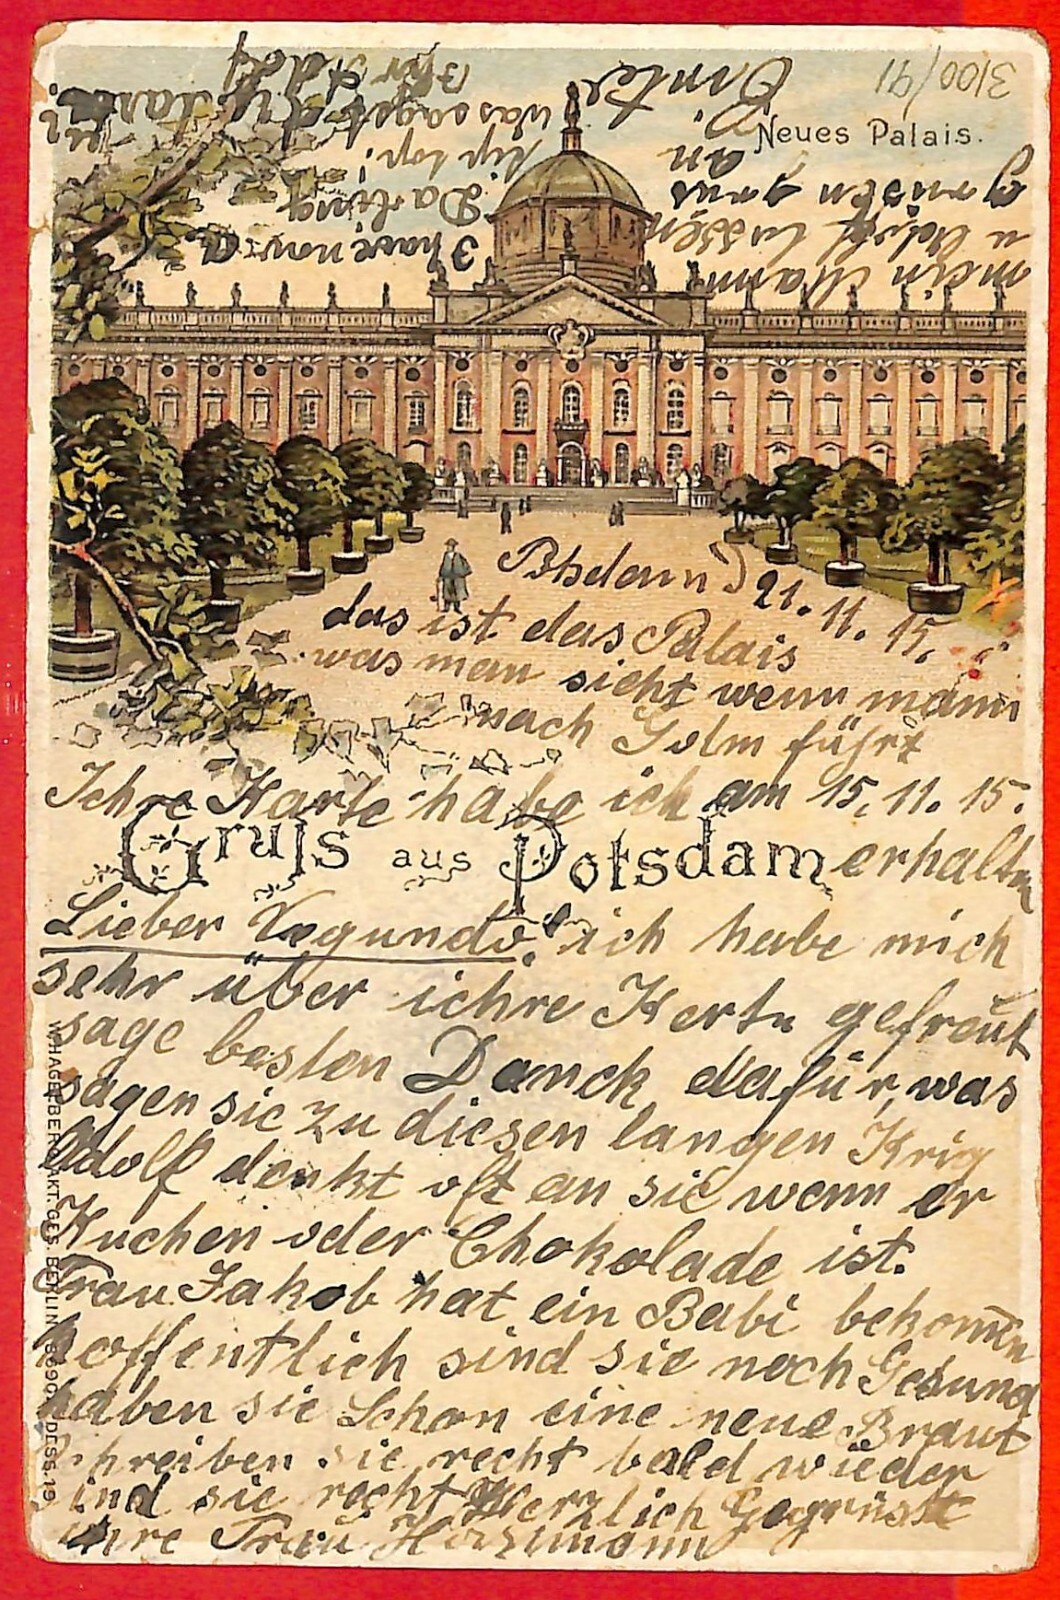 3100/91
Neues Palais.
mein Mann
u Adolf lassen
Grüsen
an
Onkel
I have now a
Darling
was saget
Potsdam 21.11.15.
das ist das Palais
was man sieht wenn mann
nach Golm führt
Ichre Karte habe ich am 15.11.15.
Gruss aus Potsdam
erhalten
Lieber ich habe mich
sehr über ichre Karte gefreut
sage besten Danck dafür, was
sagen sie zu diesen langen Krig
Adolf denkt oft an sie wenn er
Kuchen oder Chokolade ist.
Frau Jakob hat ein Babi bekommen
hoffentlich sind sie noch Gesund
haben sie Schon eine neue Braut
Schreiben sie recht bald wieder
sind sie recht Herzlich Gegrüsst
ihre Frau
W. HAGELBERG AKT. GES. BERLIN DESS. 19